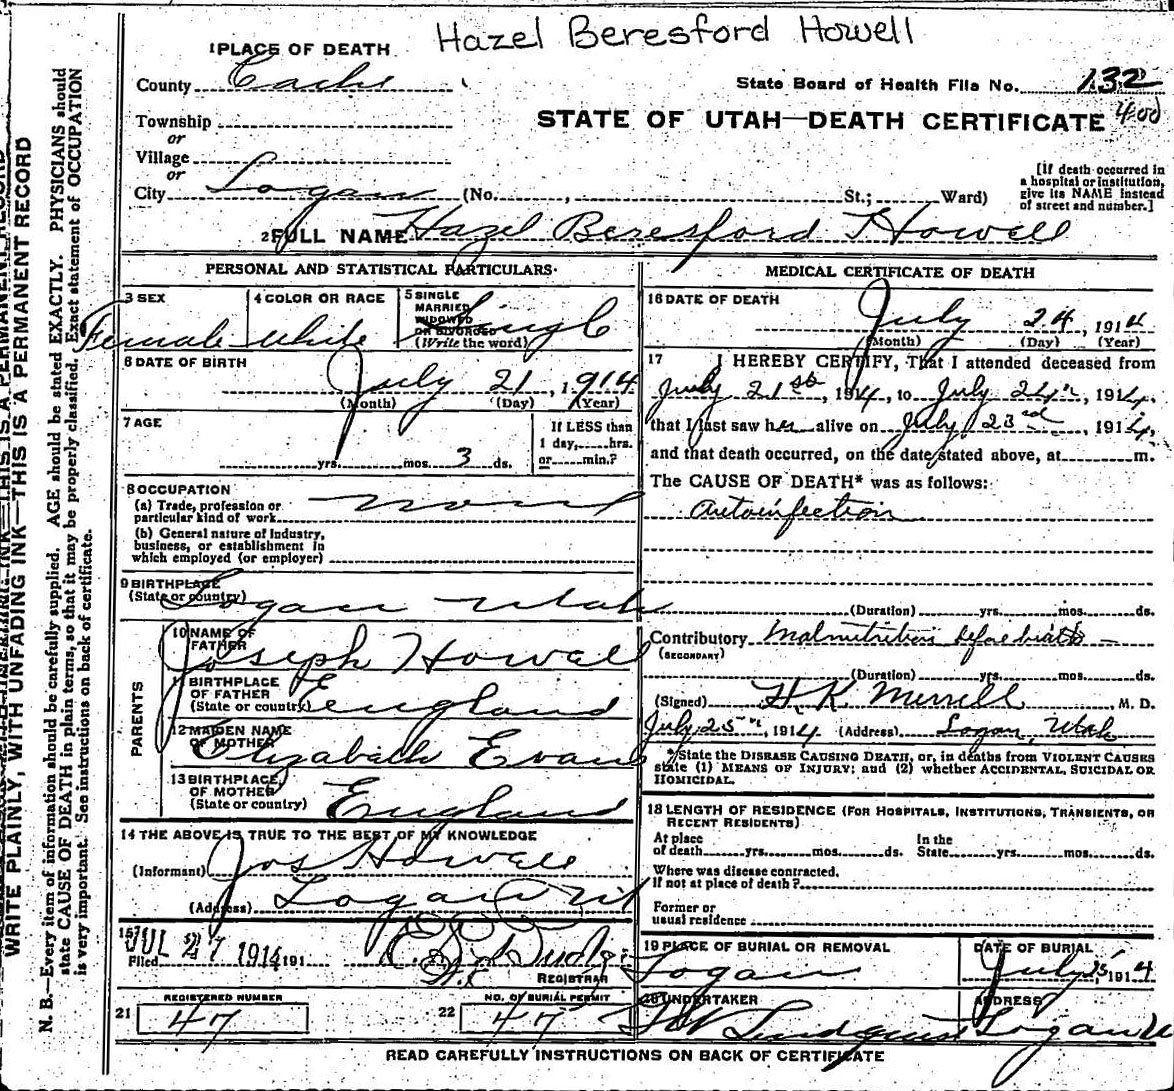 Hazel Beresford Howell
1 PLACE OF DEATH
County Cache
State Board of Health File No. 132
400
STATE OF UTAH—DEATH CERTIFICATE
Township
or
Village
or
City Logan (No. , St.; Ward)
[If death occurred in
a hospital or institution,
give its NAME instead
of street and number.]
2 FULL NAME Hazel Beresford Howell
PERSONAL AND STATISTICAL PARTICULARS
3 SEX
Female
4 COLOR OR RACE
White
5 SINGLE
MARRIED
WIDOWED
OR DIVORCED
(Write the word)
Single
6 DATE OF BIRTH
July 21, 1914
(Month) (Day) (Year)
7 AGE
yrs. mos. 3 ds.
If LESS than
1 day, hrs.
or min.?
8 OCCUPATION
(a) Trade, profession or
particular kind of work
none
(b) General nature of Industry,
business, or establishment in
which employed (or employer)
9 BIRTHPLACE
(State or country)
Logan Utah
PARENTS
10 NAME OF
FATHER
Joseph Howell
11 BIRTHPLACE
OF FATHER
(State or country)
England
12 MAIDEN NAME
OF MOTHER
Elizabeth Evans
13 BIRTHPLACE
OF MOTHER
(State or country)
England
14 THE ABOVE IS TRUE TO THE BEST OF MY KNOWLEDGE
(Informant) Jos Howell
(Address) Logan Ut
15
Filed JUL 27 1914 191
REGISTRAR
REGISTERED NUMBER
21 47
NO. OF BURIAL PERMIT
22 47
MEDICAL CERTIFICATE OF DEATH
16 DATE OF DEATH
July 24, 1914
(Month) (Day) (Year)
17 I HEREBY CERTIFY, That I attended deceased from
July 21st, 1914, to July 24th, 1914,
that I last saw her alive on July 23rd, 1914,
and that death occurred, on the date stated above, at m.
The CAUSE OF DEATH* was as follows:
Autoinfection
(Duration) yrs. mos. ds.
Contributory Malnutrition before birth
(SECONDARY)
(Duration) yrs. mos. ds.
(Signed) H. K. Merrill, M. D.
July 25th, 1914 (Address) Logan, Utah
*State the DISEASE CAUSING DEATH, or, in deaths from VIOLENT CAUSES
state (1) MEANS OF INJURY; and (2) whether ACCIDENTAL, SUICIDAL OR
HOMICIDAL.
18 LENGTH OF RESIDENCE (FOR HOSPITALS, INSTITUTIONS, TRANSIENTS, OR
RECENT RESIDENTS)
At place
of death yrs. mos. ds.
In the
State yrs. mos. ds.
Where was disease contracted.
if not at place of death?
Former or
usual residence
19 PLACE OF BURIAL OR REMOVAL
Logan
DATE OF BURIAL
July 25, 1914
20 UNDERTAKER
Lindquist
ADDRESS
Logan U
READ CAREFULLY INSTRUCTIONS ON BACK OF CERTIFICATE
WRITE PLAINLY, WITH UNFADING INK—THIS IS A PERMANENT RECORD
N. B.—Every item of information should be carefully supplied. AGE should be stated EXACTLY. PHYSICIANS should
state CAUSE OF DEATH in plain terms, so that it may be properly classified. Exact statement of OCCUPATION
is very important. See instructions on back of certificate.